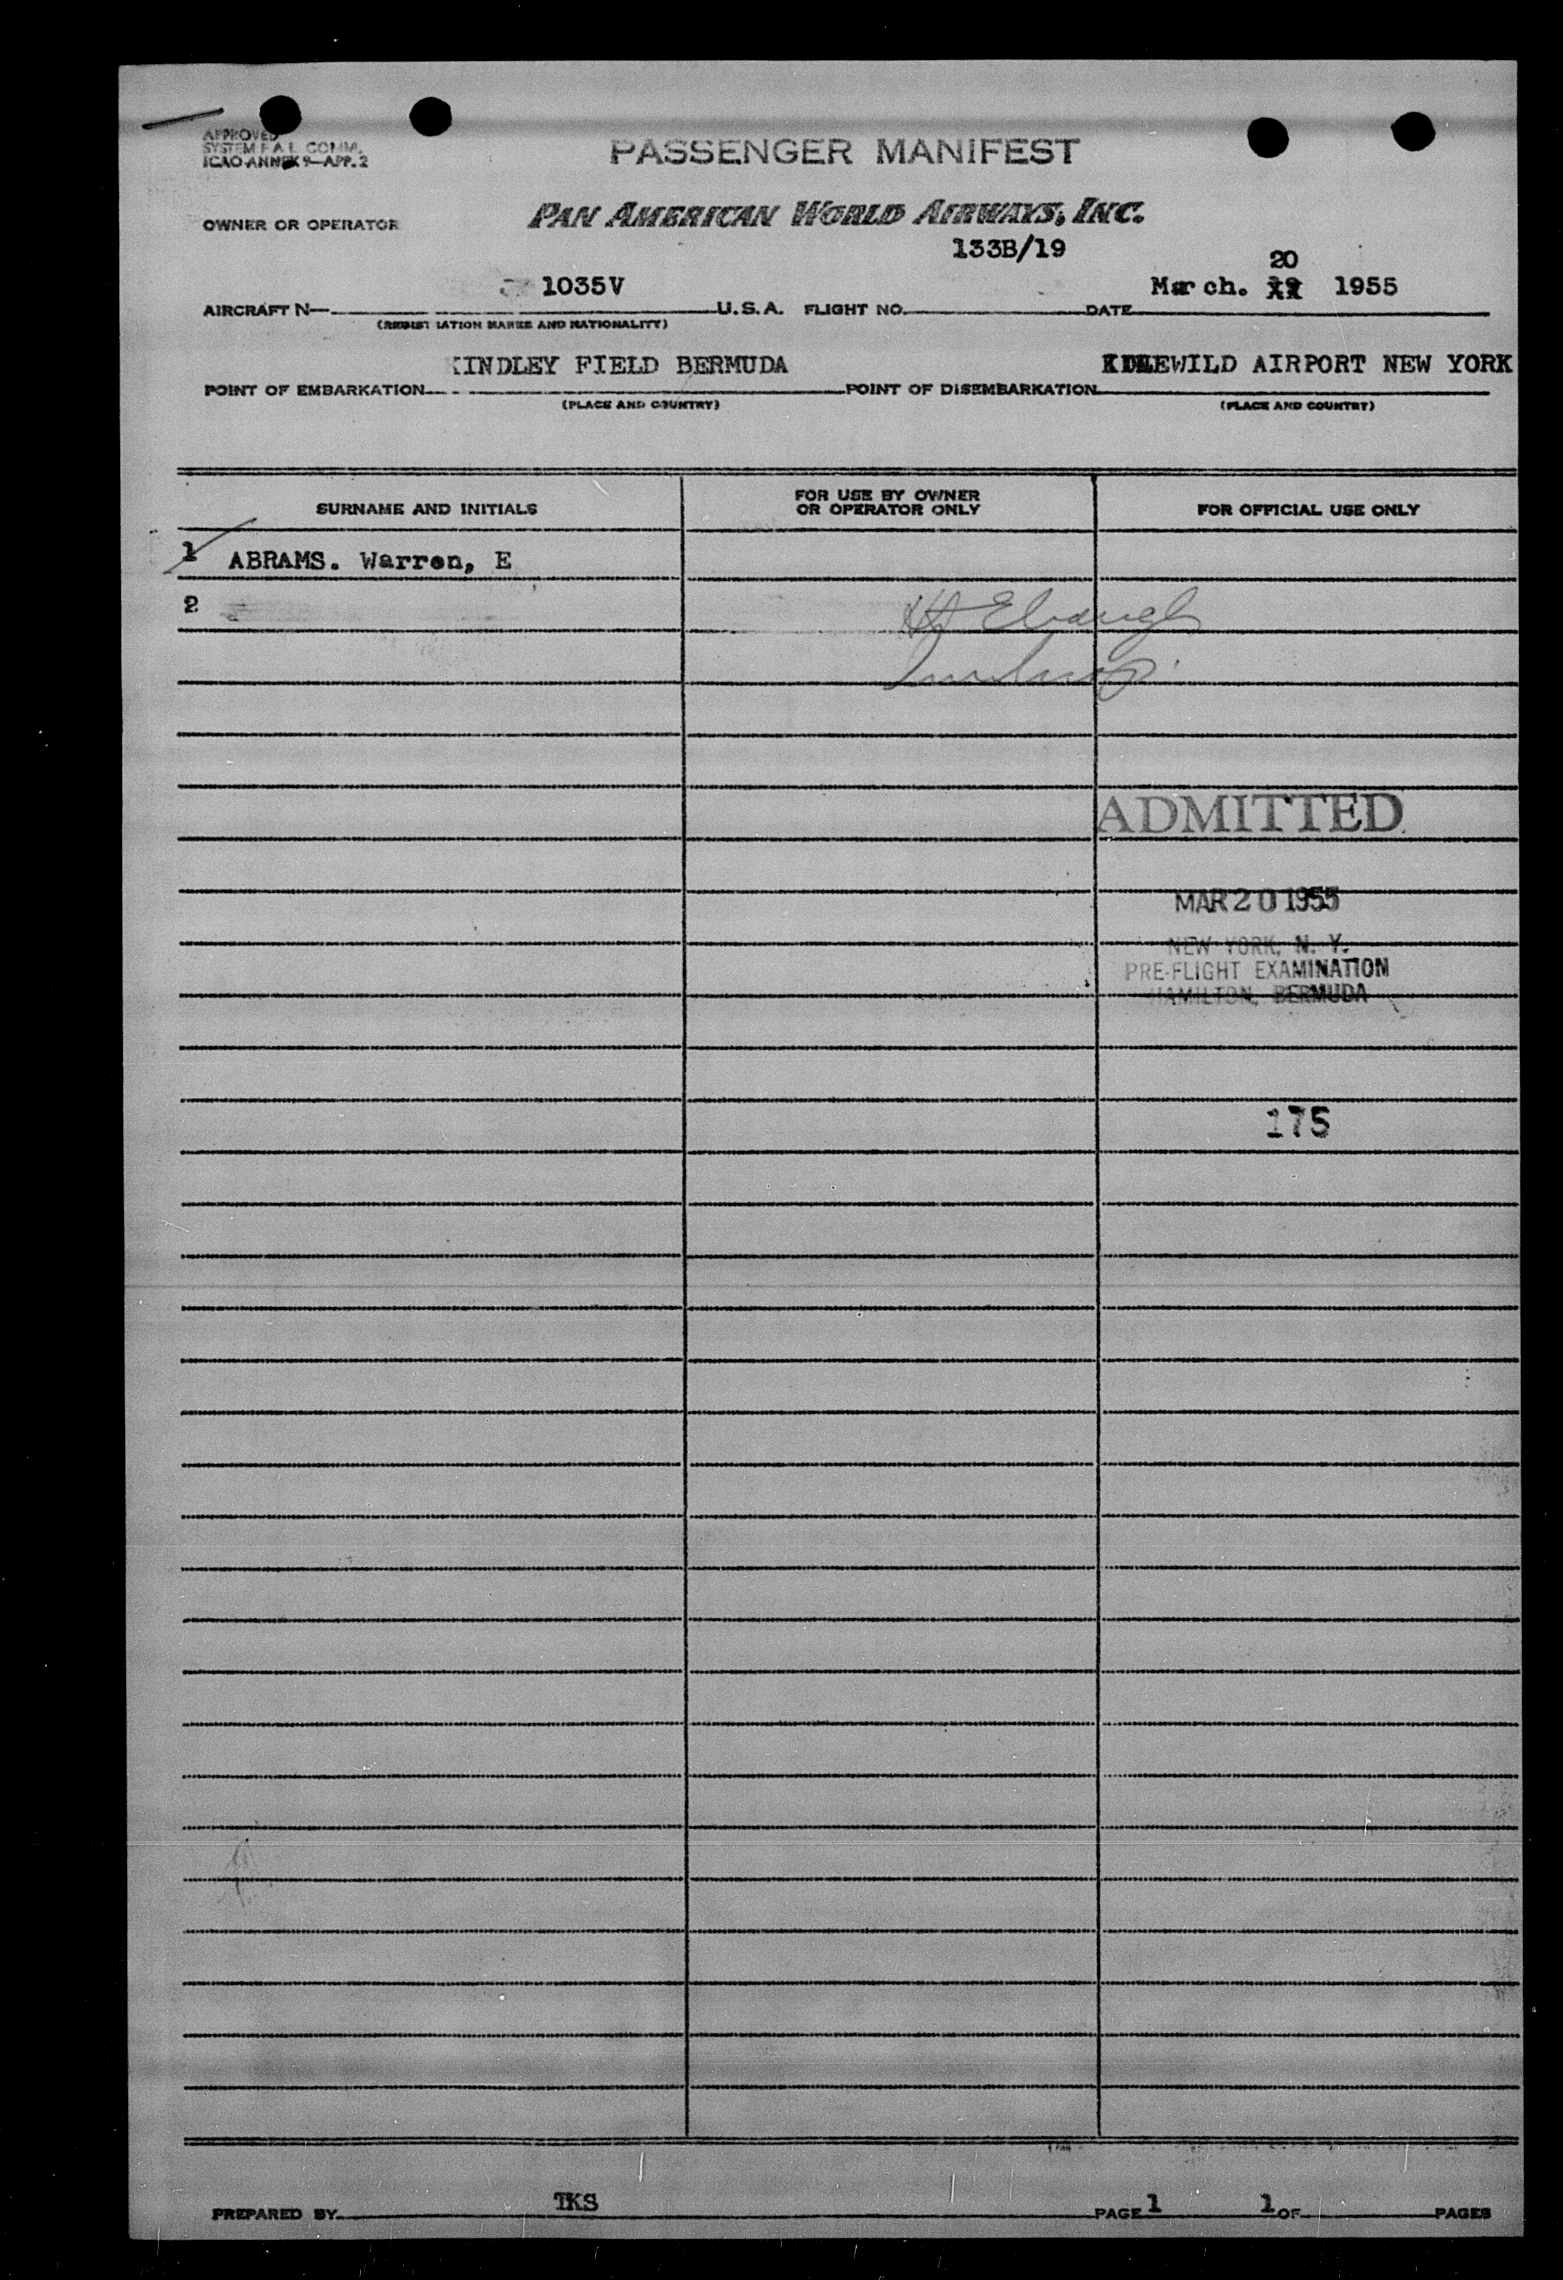 APPROVED
SYSTEM F.A.L. COMM.
ICAO ANNEX 9—APP. 2
PASSENGER MANIFEST
OWNER OR OPERATOR
PAN AMERICAN WORLD AIRWAYS, INC.
133B/19
20
1035V
March. 19 1955
AIRCRAFT N— U.S.A. FLIGHT NO. DATE
(REGISTRATION MARKS AND NATIONALITY)
KINDLEY FIELD BERMUDA IDLEWILD AIRPORT NEW YORK
POINT OF EMBARKATION POINT OF DISEMBARKATION
(PLACE AND COUNTRY) (PLACE AND COUNTRY)
SURNAME AND INITIALS
FOR USE BY OWNER
OR OPERATOR ONLY
FOR OFFICIAL USE ONLY
1 ABRAMS. Warren, E
2
ADMITTED
MAR 20 1955
NEW YORK, N. Y.
PRE-FLIGHT EXAMINATION
HAMILTON, BERMUDA
175
PREPARED BY TKS PAGE 1 1 OF PAGES